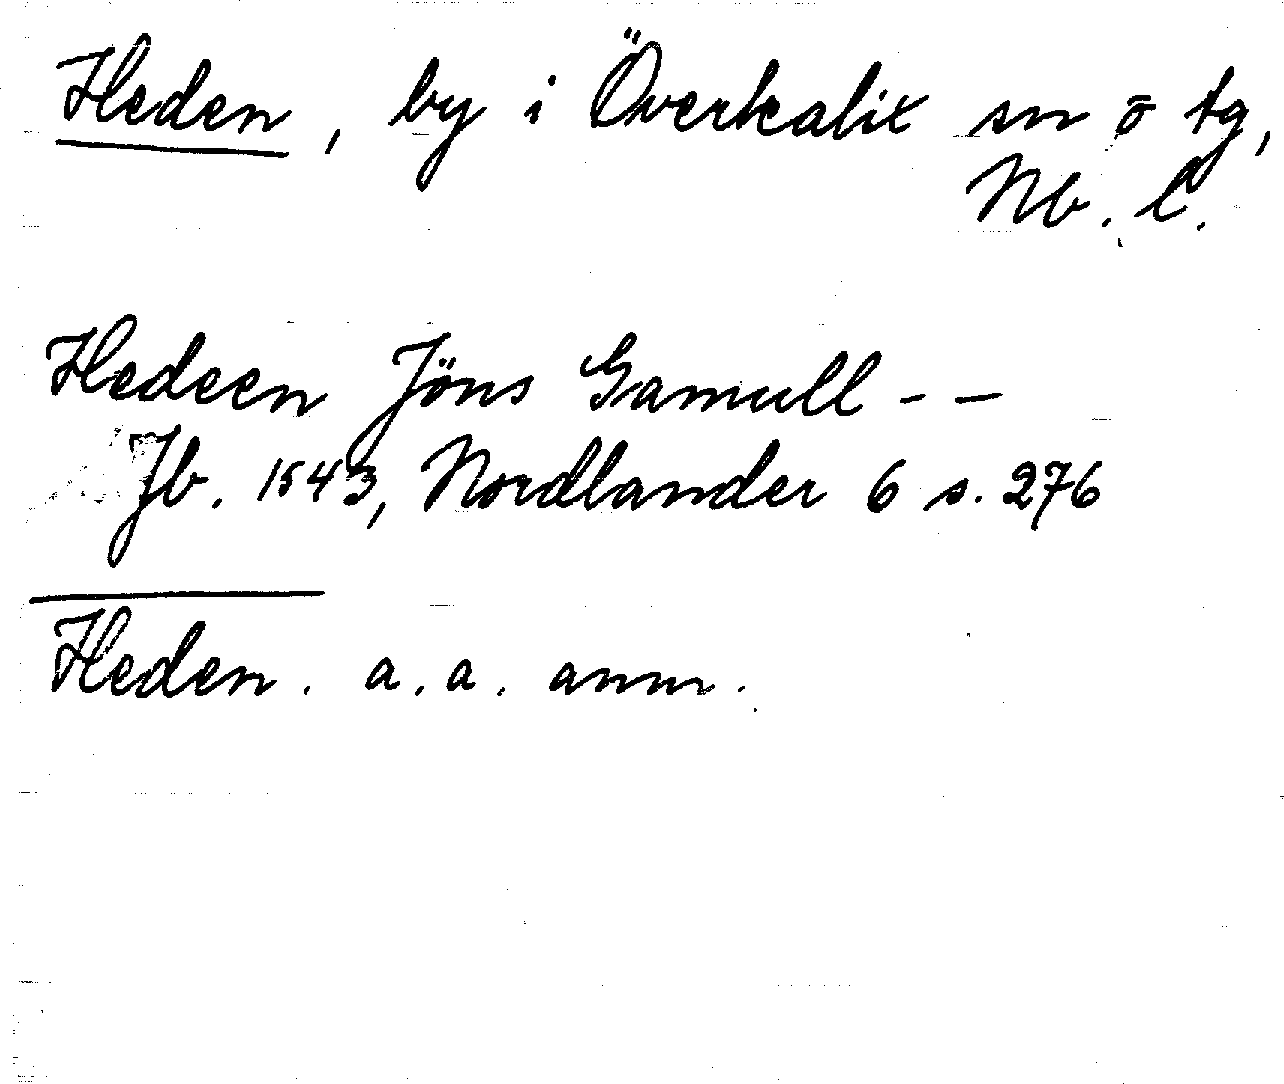 Heden, by i Överkalix sn o tg,
Nb. l.
Hedeen Jöns Gamull - —
Jb. 1543, Nordlander 6 s. 276
Heden. a. a. anm.